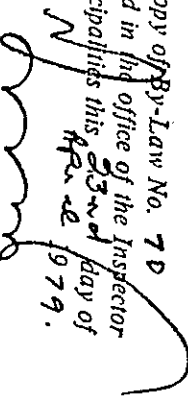 opy of By-Law No. 70
d in the office of the Inspector
cipalities this 23rd day of
April 1979.